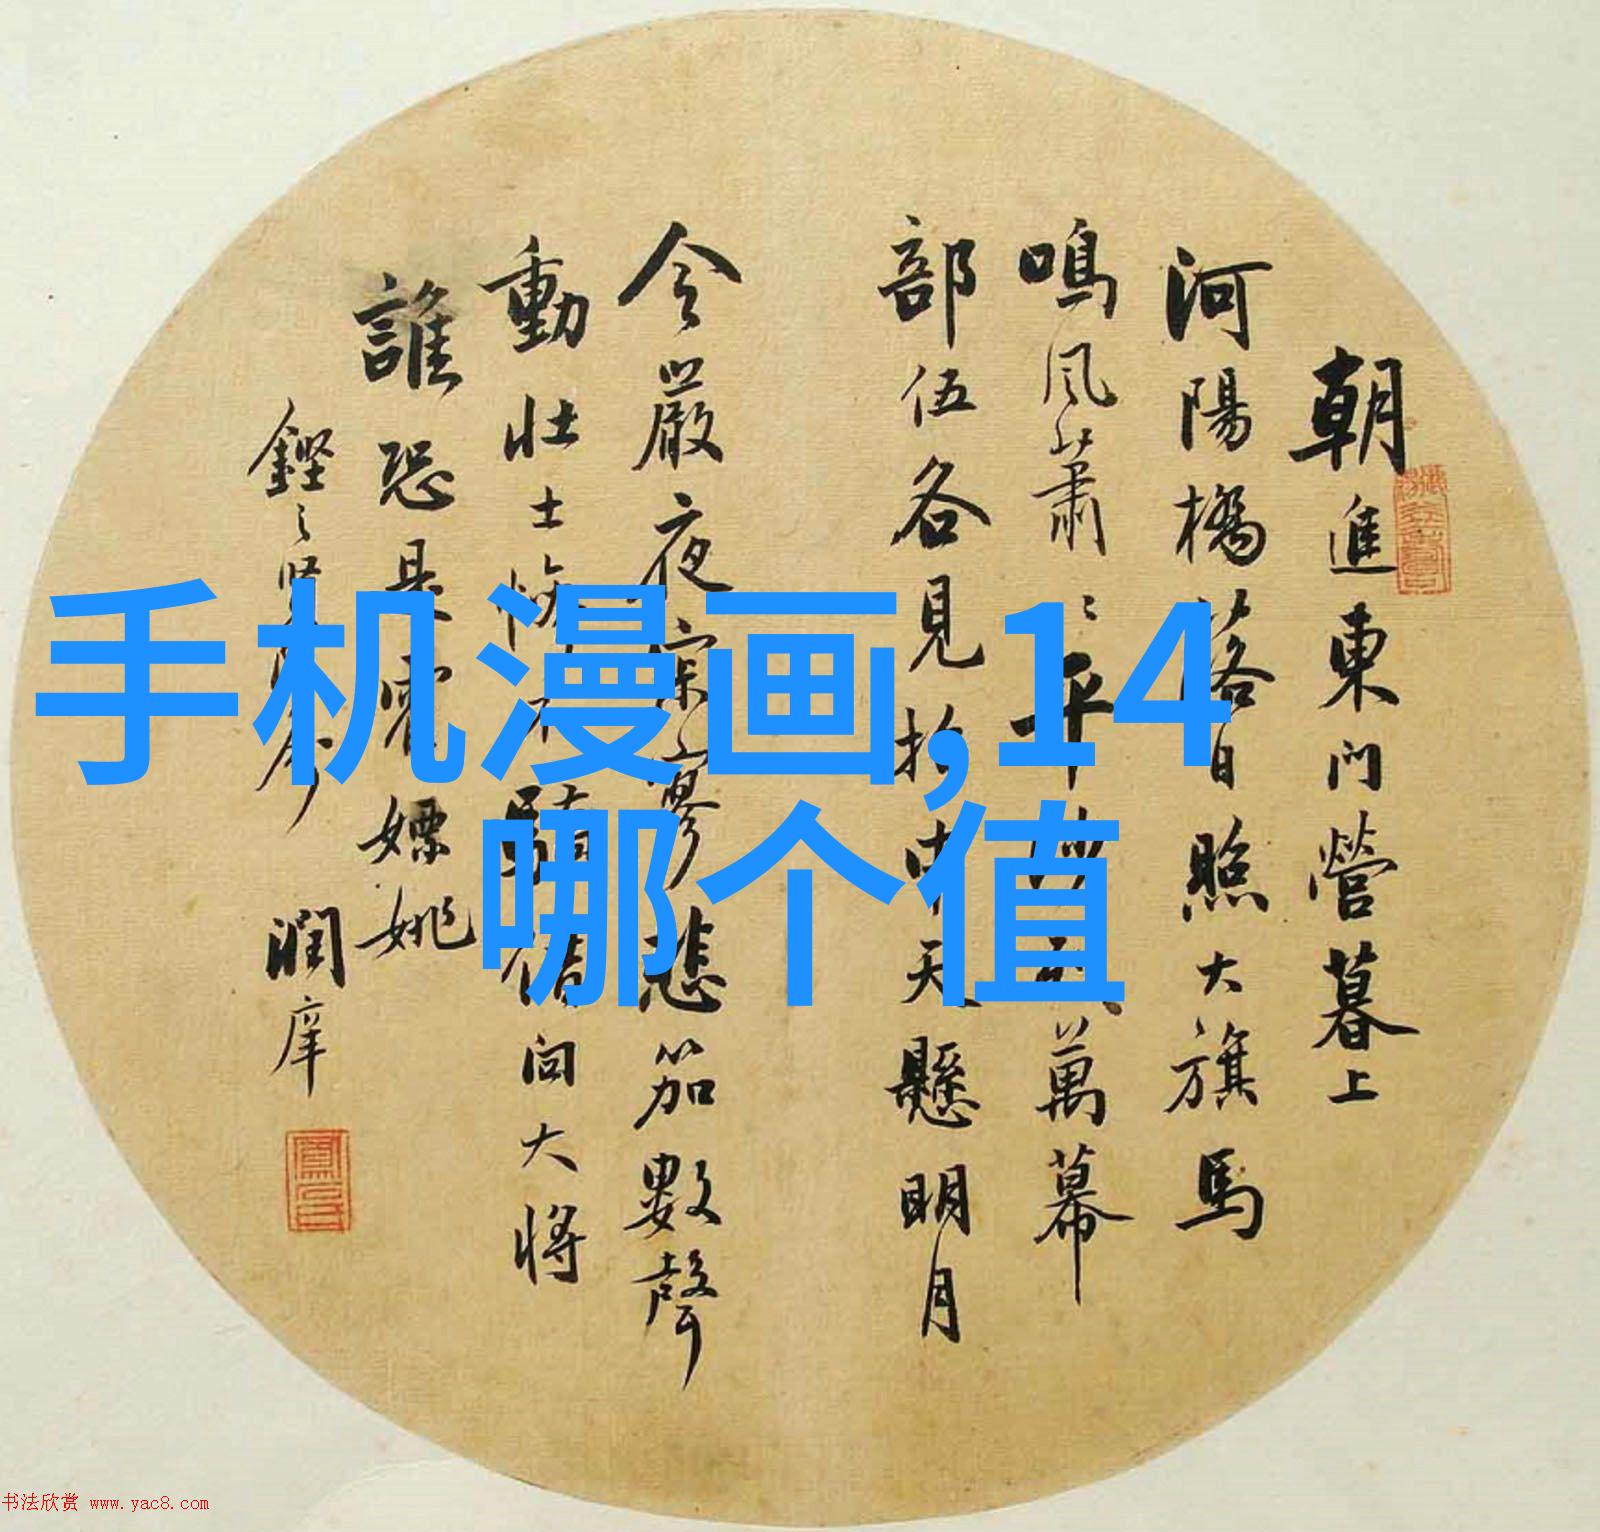 手机漫画,14
哪个值
朝進東門營暮上
河陽橋落日照大旗馬
鳴風蕭〻平沙萬幕
部伍各見招中天懸明月
令嚴夜寂寥悲笳數聲
動壯士慘不驕借問大將
誰恐是霍嫖姚
潤庠
书法欣赏 www.yac8.com